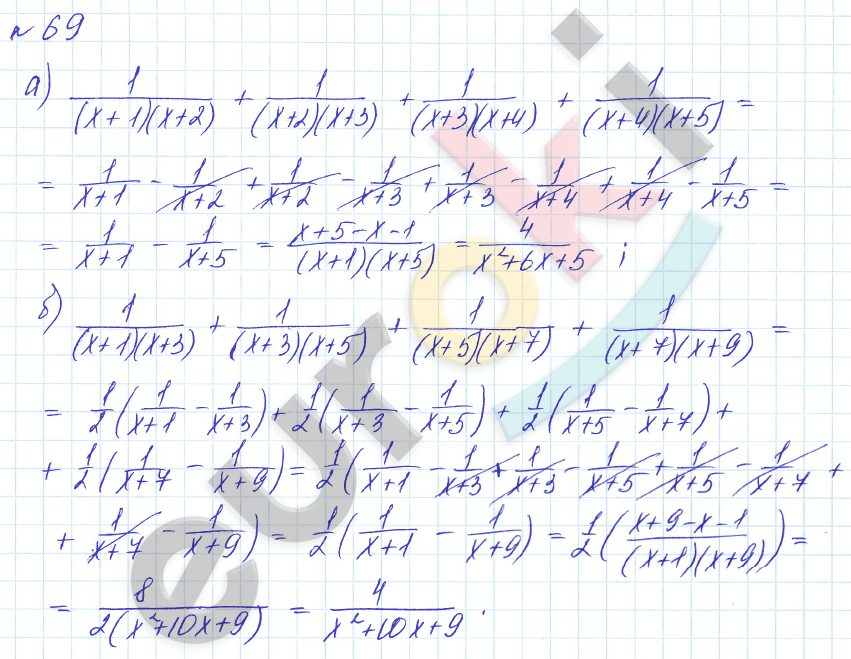 № 69
а) 1/((x+1)(x+2)) + 1/((x+2)(x+3)) + 1/((x+3)(x+4)) + 1/((x+4)(x+5)) =
= 1/(x+1) - 1/(x+2) + 1/(x+2) - 1/(x+3) + 1/(x+3) - 1/(x+4) + 1/(x+4) - 1/(x+5) =
= 1/(x+1) - 1/(x+5) = (x+5-x-1)/((x+1)(x+5)) = 4/(x²+6x+5) ;
б) 1/((x+1)(x+3)) + 1/((x+3)(x+5)) + 1/((x+5)(x+7)) + 1/((x+7)(x+9)) =
= 1/2 (1/(x+1) - 1/(x+3)) + 1/2 (1/(x+3) - 1/(x+5)) + 1/2 (1/(x+5) - 1/(x+7)) +
+ 1/2 (1/(x+7) - 1/(x+9)) = 1/2 (1/(x+1) - 1/(x+3) + 1/(x+3) - 1/(x+5) + 1/(x+5) - 1/(x+7) +
+ 1/(x+7) - 1/(x+9)) = 1/2 (1/(x+1) - 1/(x+9)) = 1/2 ((x+9-x-1)/((x+1)(x+9))) =
= 8/(2(x²+10x+9)) = 4/(x²+10x+9) .
euroki